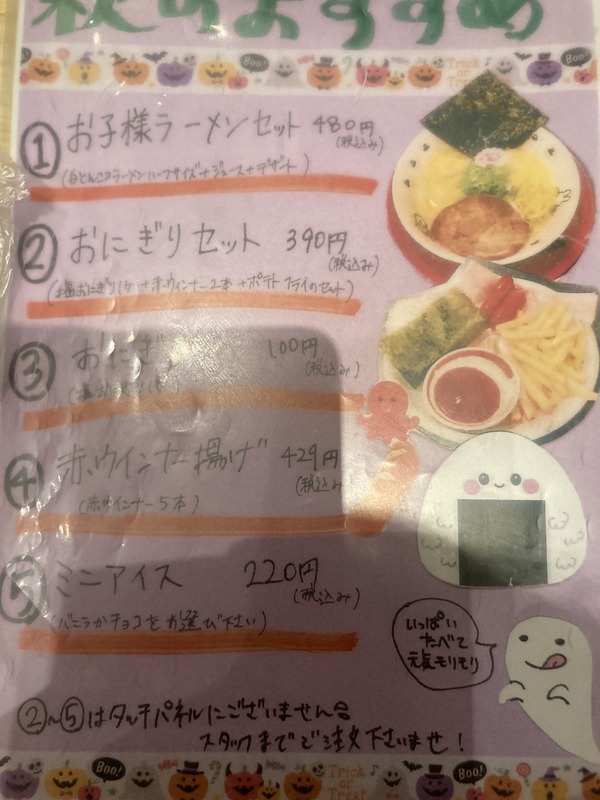 秋のおすすめ
Boo!
Trick or Treat
① お子様ラーメンセット 480円 (税込み)
(白とんこつラーメンハーフサイズ+ジュース+デザート)
② おにぎりセット 390円 (税込み)
(塩おにぎり1ケ+赤ウィンナー2本+ポテトフライのセット)
③ おにぎ 100円 (税込み)
④ 赤ウインナー揚げ 429円 (税込み
(赤ウインナー5本)
⑤ ミニアイス 220円 (税込み)
(バニラかチョコをお選び下さい)
いっぱい
たべて
元気モリモリ
②~⑤はタッチパネルにございません
スタッフまでご注文下さいませ!
Boo!
Trick or Treat
Boo!